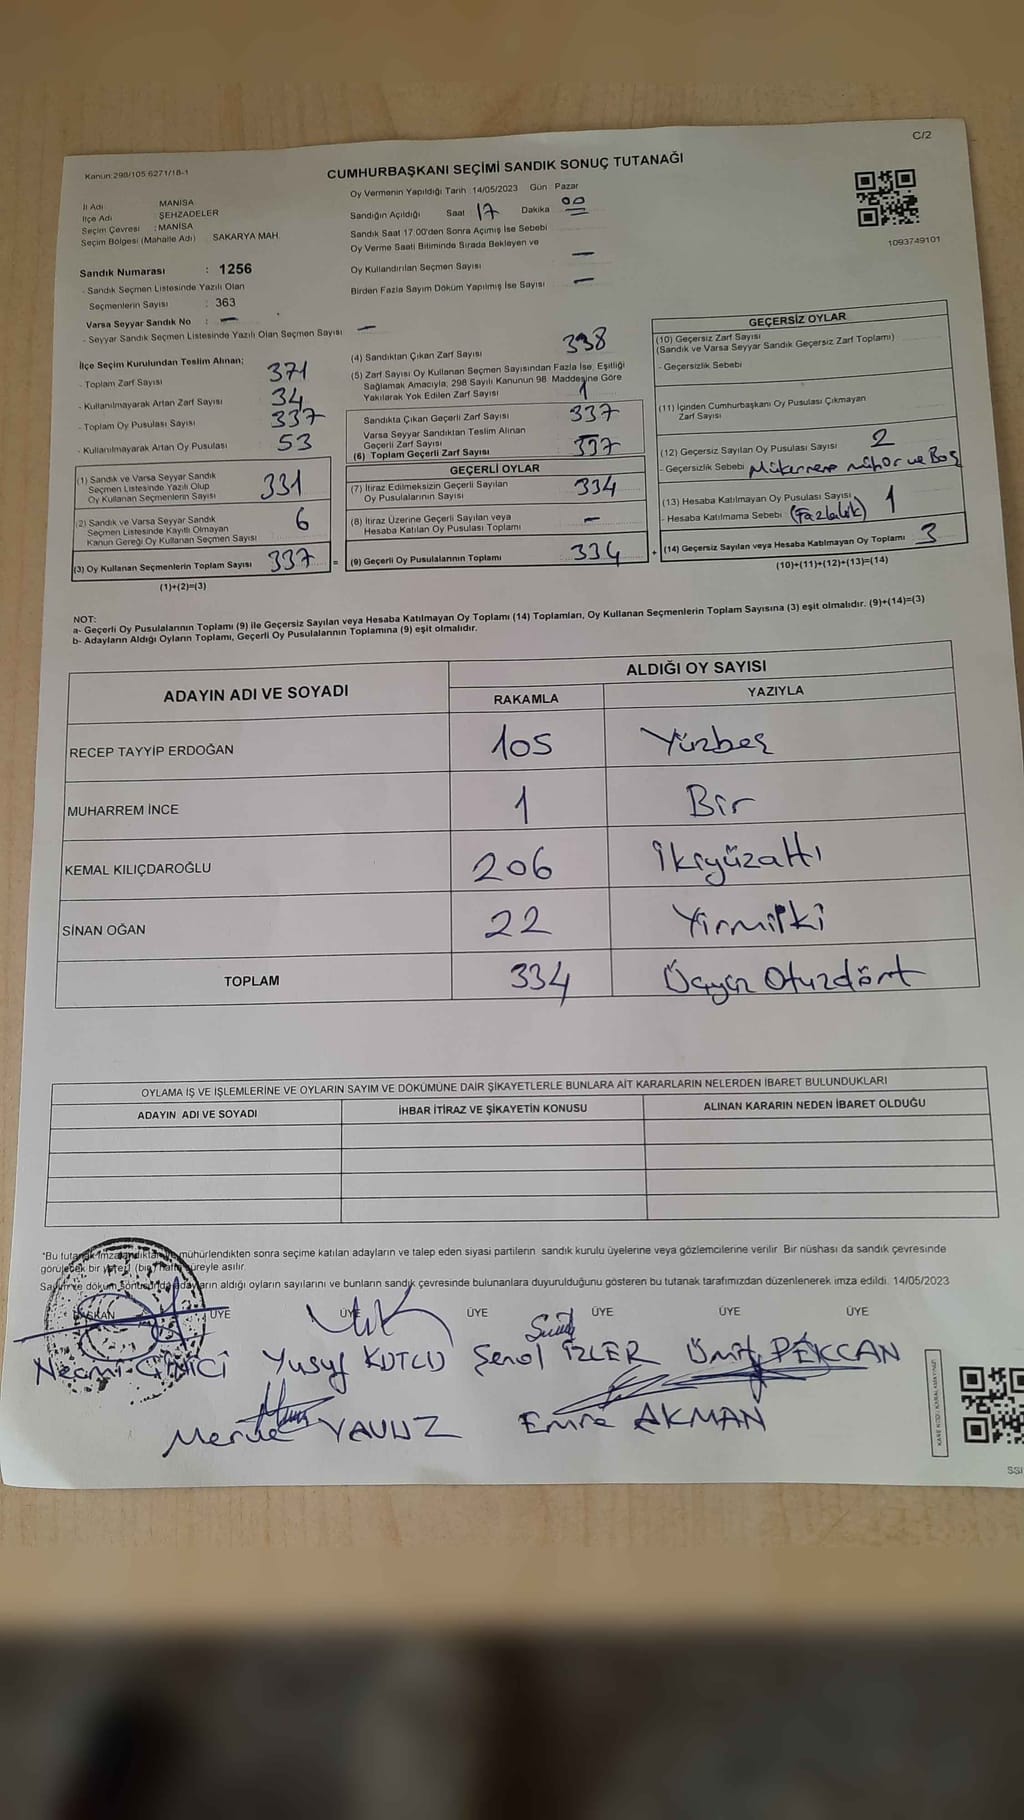 C/2
Kanun:298/105 6271/18-1
CUMHURBAŞKANI SEÇİMİ SANDIK SONUÇ TUTANAĞI
İl Adı : MANİSA
İlçe Adı : ŞEHZADELER
Seçim Çevresi : MANİSA
Seçim Bölgesi (Mahalle Adı) SAKARYA MAH.
Oy Vermenin Yapıldığı Tarih :14/05/2023 Gün Pazar
Sandığın Açıldığı Saat 17 Dakika 00
Sandık Saat 17:00'den Sonra Açımış İse Sebebi
Oy Verme Saati Bitiminde Sırada Bekleyen ve
Oy Kullandırılan Seçmen Sayısı —
Birden Fazla Sayım Döküm Yapılmış İse Sayısı —
1093749101
Sandık Numarası : 1256
- Sandık Seçmen Listesinde Yazılı Olan
Seçmenlerin Sayısı : 363
Varsa Seyyar Sandık No : —
- Seyyar Sandık Seçmen Listesinde Yazılı Olan Seçmen Sayısı —
İlçe Seçim Kurulundan Teslim Alınan;
- Toplam Zarf Sayısı 371
- Kullanılmayarak Artan Zarf Sayısı 34
- Toplam Oy Pusulası Sayısı 337
- Kullanılmayarak Artan Oy Pusulası 53
(1) Sandık ve Varsa Seyyar Sandık
Seçmen Listesinde Yazılı Olup
Oy Kullanan Seçmenlerin Sayısı 331
(2) Sandık ve Varsa Seyyar Sandık
Seçmen Listesinde Kayıtlı Olmayan
Kanun Gereği Oy Kullanan Seçmen Sayısı 6
(3) Oy Kullanan Seçmenlerin Toplam Sayısı 337 =
(1)+(2)=(3)
(4) Sandıktan Çıkan Zarf Sayısı 338
(5) Zarf Sayısı Oy Kullanan Seçmen Sayısından Fazla İse, Eşitliği
Sağlamak Amacıyla, 298 Sayılı Kanunun 98. Maddesine Göre
Yakılarak Yok Edilen Zarf Sayısı 1
Sandıkta Çıkan Geçerli Zarf Sayısı 337
Varsa Seyyar Sandıktan Teslim Alınan
Geçerli Zarf Sayısı —
(6) Toplam Geçerli Zarf Sayısı 337
GEÇERLİ OYLAR
(7) İtiraz Edilmeksizin Geçerli Sayılan
Oy Pusulalarının Sayısı 334
(8) İtiraz Üzerine Geçerli Sayılan veya
Hesaba Katılan Oy Pusulası Toplamı —
(9) Geçerli Oy Pusulalarının Toplamı 334 +
GEÇERSİZ OYLAR
(10) Geçersiz Zarf Sayısı
(Sandık ve Varsa Seyyar Sandık Geçersiz Zarf Toplamı)
- Geçersizlik Sebebi
(11) İçinden Cumhurbaşkanı Oy Pusulası Çıkmayan
Zarf Sayısı
(12) Geçersiz Sayılan Oy Pusulası Sayısı 2
- Geçersizlik Sebebi mühür ve Boş
(13) Hesaba Katılmayan Oy Pusulası Sayısı 1
- Hesaba Katılmama Sebebi (Fazlalık)
(14) Geçersiz Sayılan veya Hesaba Katılmayan Oy Toplamı 3
(10)+(11)+(12)+(13)=(14)
NOT:
a- Geçerli Oy Pusulalarının Toplamı (9) ile Geçersiz Sayılan veya Hesaba Katılmayan Oy Toplamı (14) Toplamları, Oy Kullanan Seçmenlerin Toplam Sayısına (3) eşit olmalıdır. (9)+(14)=(3)
b- Adayların Aldığı Oyların Toplamı, Geçerli Oy Pusulalarının Toplamına (9) eşit olmalıdır.
ADAYIN ADI VE SOYADI ALDIĞI OY SAYISI
RAKAMLA YAZIYLA
RECEP TAYYİP ERDOĞAN 105 Yüzbeş
MUHARREM İNCE 1 Bir
KEMAL KILIÇDAROĞLU 206 İkiyüzaltı
SİNAN OĞAN 22 Yirmiiki
TOPLAM 334 Üçyüz Otuzdört
OYLAMA İŞ VE İŞLEMLERİNE VE OYLARIN SAYIM VE DÖKÜMÜNE DAİR ŞİKAYETLERLE BUNLARA AİT KARARLARIN NELERDEN İBARET BULUNDUKLARI
ADAYIN ADI VE SOYADI İHBAR İTİRAZ VE ŞİKAYETİN KONUSU ALINAN KARARIN NEDEN İBARET OLDUĞU
*Bu tutanak imzalandıktan ve mühürlendikten sonra seçime katılan adayların ve talep eden siyasi partilerin sandık kurulu üyelerine veya gözlemcilerine verilir. Bir nüshası da sandık çevresinde
görülecek bir yere (bir) hafta süreyle asılır.
Sayım ve döküm sonucunda adayların aldığı oyların sayılarını ve bunların sandık çevresinde bulunanlara duyurulduğunu gösteren bu tutanak tarafımızdan düzenlenerek imza edildi. 14/05/2023
BAŞKAN ÜYE ÜYE ÜYE ÜYE ÜYE ÜYE
Necmi Yusuf KUTLU Şenol İZLER Ümit PEKCAN
Merve YAVUZ Emre AKMAN